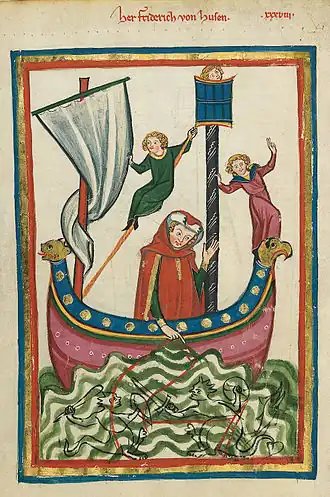 Her Friderich von Husen.
xxxviii.